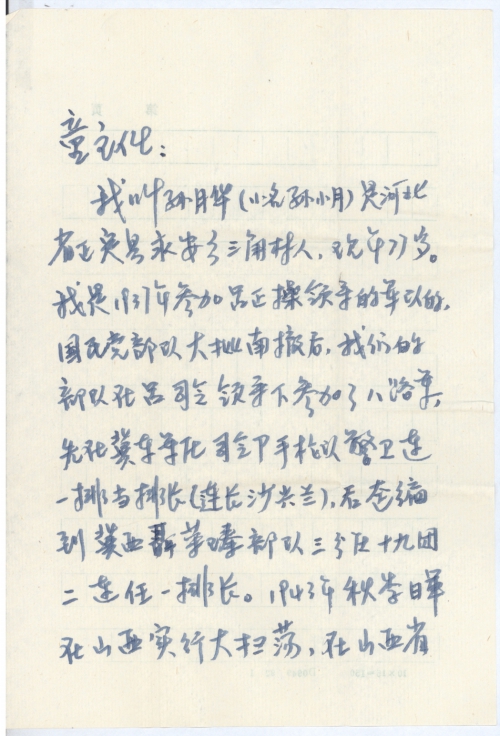 童主任:
我叫孙月华(小名孙小月)是河北
省正定县永安乡三角村人,现年77岁。
我是1937年参加吕正操领导的军队的,
国民党部队大批南撤后,我们的
部队在吕司令领导下参加了八路军,
先在冀东军区司令部手枪队警卫连
一排当排长(连长沙兴兰),后改编
到冀西部队三分区十九团
二连任一排长。1943年秋季日军
在山西实行大扫荡,在山西省